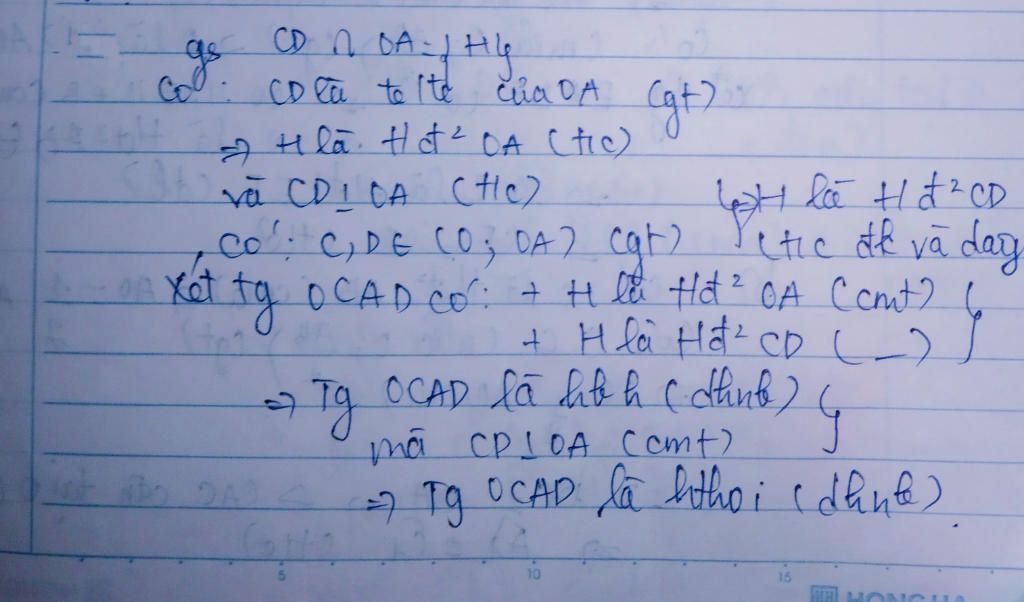 gs CD ∩ OA = {H}
Có: CD là tt/tt của OA (gt)
⇒ H là tđ² OA (t/c)
và CD ⊥ OA (t/c) } ⇒ H là tđ² CD
Có: C, D ∈ (O; OA) (gt) (t/c đk và dag
Xét tg OCAD có: + H là tđ² OA (cmt) }
+ H là tđ² CD (_) }
⇒ Tg OCAD là hbh (dhnb) }
mà CD ⊥ OA (cmt)
⇒ Tg OCAD là hthoi (dhnb).
5 10 15
HONG HA